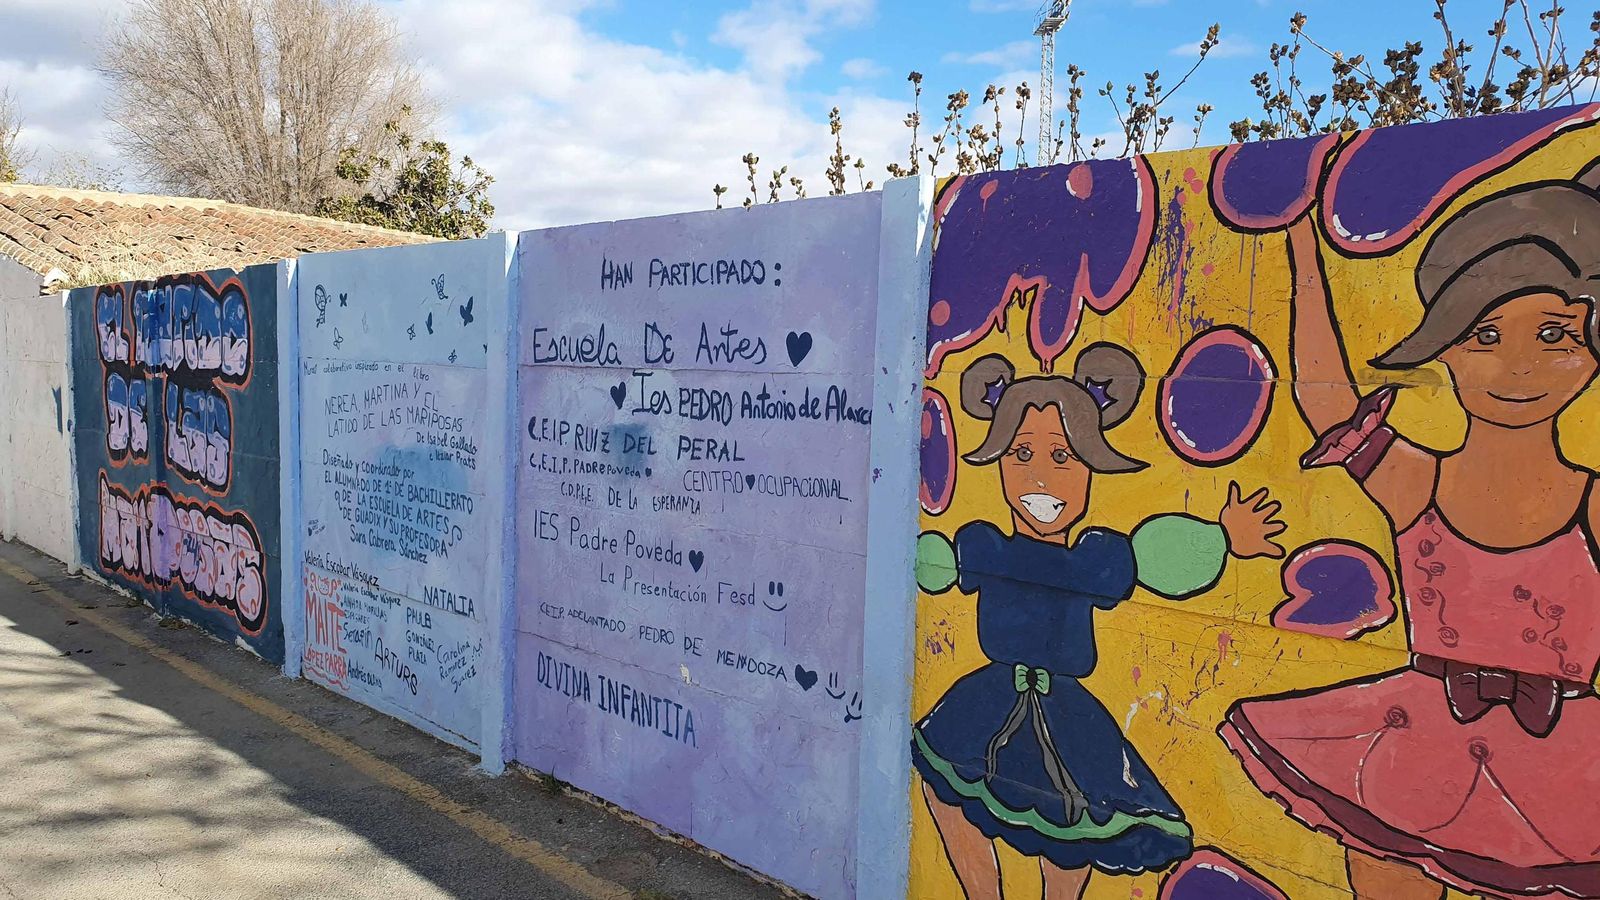 EL LATIDO
DE LAS
MARIPOSAS
Mural colaborativo inspirado en el libro
NEREA, MARTINA Y EL
LATIDO DE LAS MARIPOSAS
De Isabel Gallado
e Iziar Prats
Diseñado y coordinado por
EL ALUMNADO DE 1º DE BACHILLERATO
DE LA ESCUELA DE ARTES
DE GUADIX Y SU PROFESORA
Sara Cabrera Sánchez
Valeria Escobar Vásquez
NATALIA
MAITE
LOPEZ PARRA
Serafin
ARTURS
PAULA
GONZÁLEZ
PLAZA
Carolina
Ramirez
Suarez
HAN PARTICIPADO:
Escuela De Artes
Ies PEDRO Antonio de Alarc
C.E.I.P. RUIZ DEL PERAL
C.E.I.P. PADRE POVEDA
CENTRO OCUPACIONAL.
DE LA ESPERANZA
IES Padre Poveda
La Presentación Fesd
C.E.I.P. ADELANTADO PEDRO DE MENDOZA
DIVINA INFANTITA